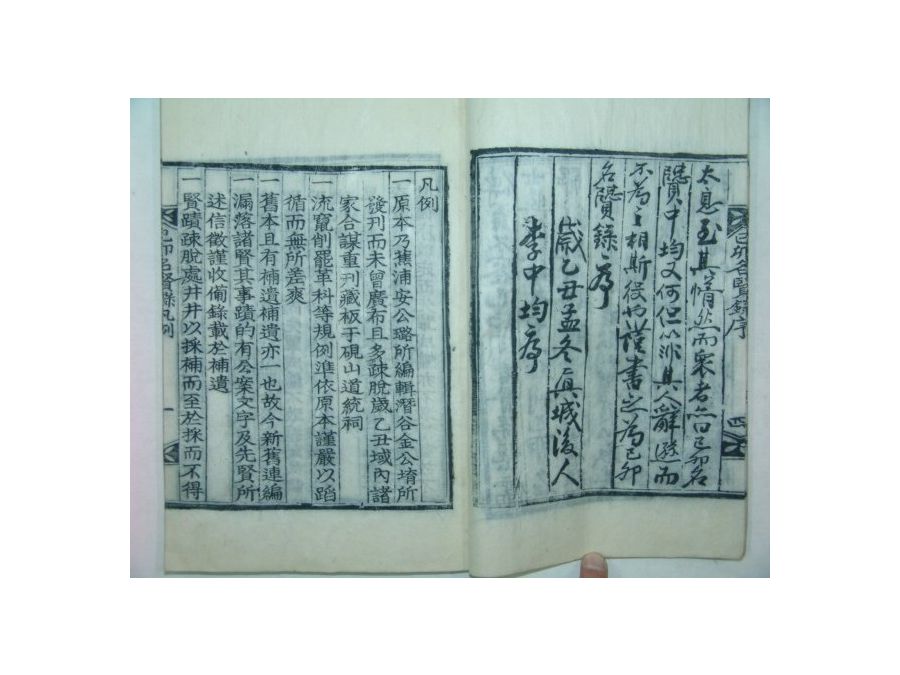 己卯名賢錄序
四
太息至其惰然而衆者曰己卯名
賢中均又何但以非其人辭遜而
不為之相斯役也謹書之為己卯
名賢錄序
歲乙丑孟冬眞城後人
李中均序
凡例
一原本乃蕉浦安公璐所編輯潛谷金公堉所
發刊而未曾廣布且多疎脫歲乙丑域內諸
家合謀重刊藏板于硯山道統祠
一流竄削罷革科等規例準依原本謹嚴以蹈
循而無所差爽
一舊本且有補遺補遺亦一也故今新舊連編
一漏落諸賢其事蹟的有公案文字及先賢所
述信徵謹收備錄載於補遺
一賢蹟疎脫處井井以採補而至於採而不得
己卯名賢錄凡例
一